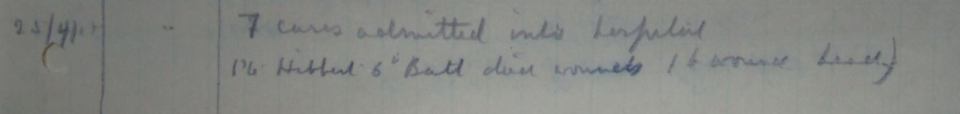 25/4/17 " 7 cases admitted into hospital
Pte Hibbert 6th Batt died wounds (6 wounds head)